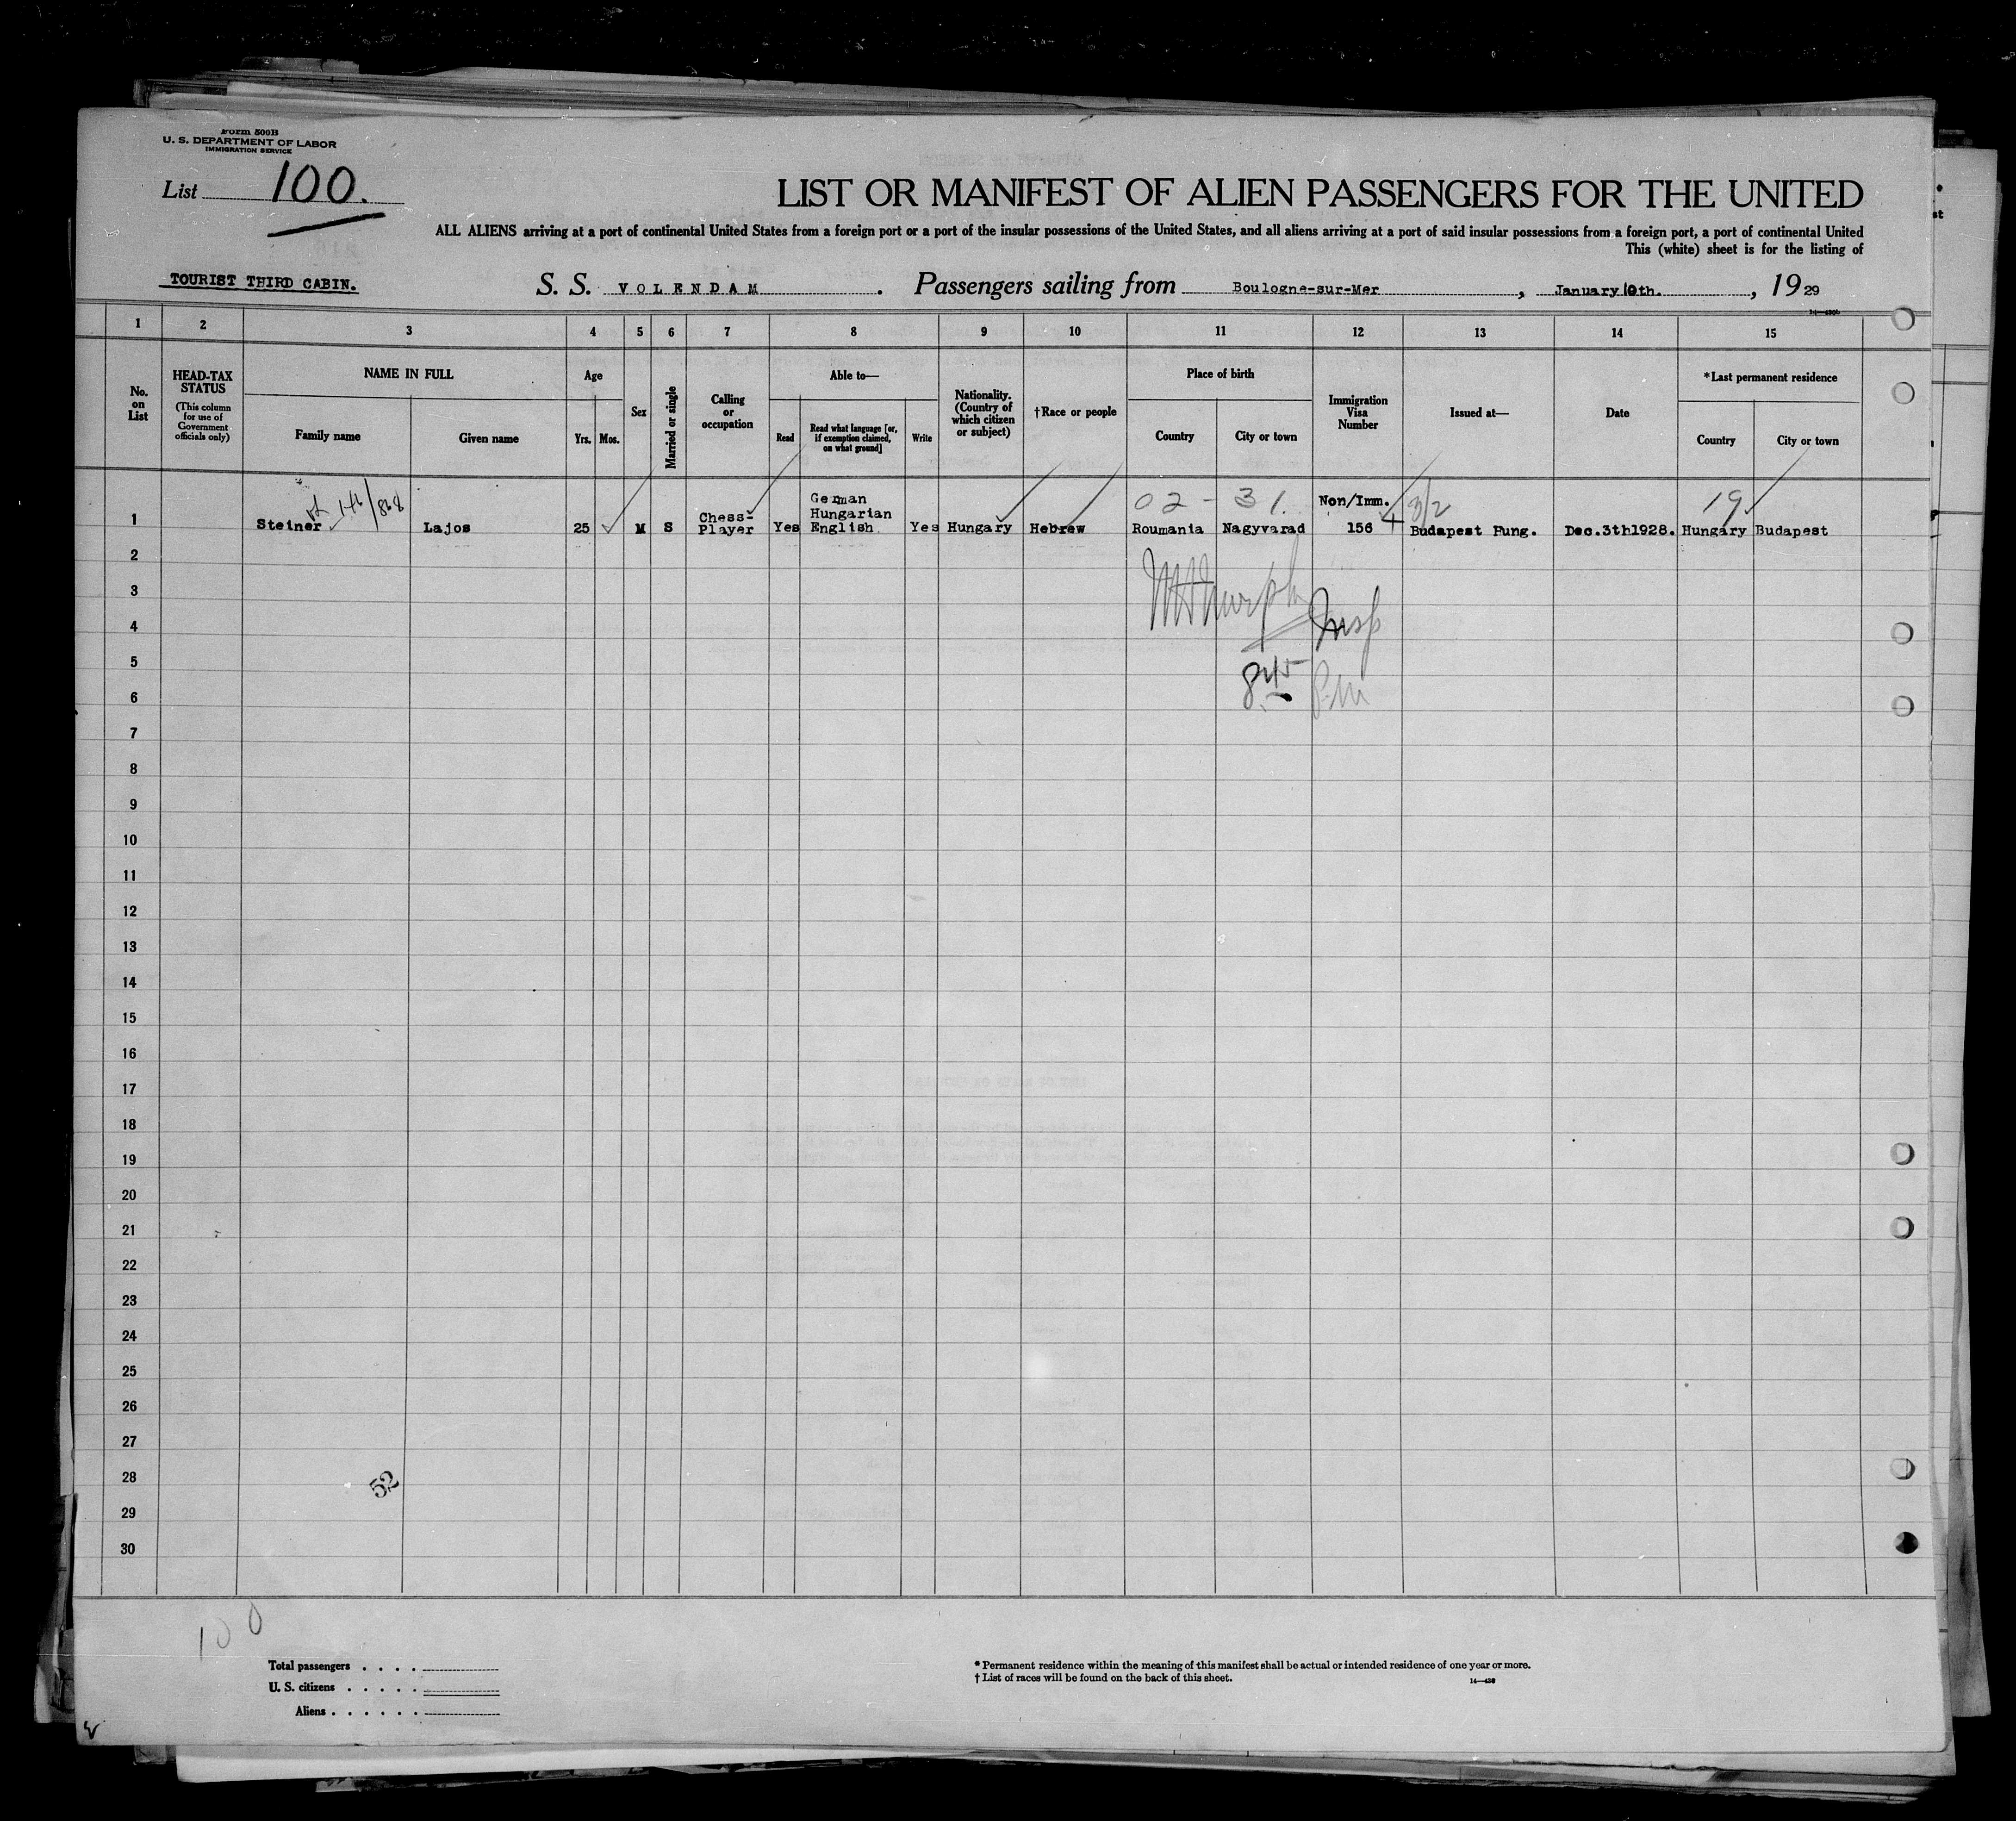 Form 500B
U. S. DEPARTMENT OF LABOR
IMMIGRATION SERVICE
List 100.
LIST OR MANIFEST OF ALIEN PASSENGERS FOR THE UNITED
ALL ALIENS arriving at a port of continental United States from a foreign port or a port of the insular possessions of the United States, and all aliens arriving at a port of said insular possessions from a foreign port, a port of continental United
This (white) sheet is for the listing of
TOURIST THIRD CABIN. S. S. VOLENDAM. Passengers sailing from Boulogne-sur-Mer, January 10th., 1929
1 2 3 4 5 6 7 8 9 10 11 12 13 14 15
No. on List
HEAD-TAX STATUS
(This column for use of Government officials only)
NAME IN FULL
Family name
Given name
Age
Yrs. Mos.
Sex
Married or single
Calling or occupation
Able to—
Read
Read what language [or, if exemption claimed, on what ground]
Write
Nationality. (Country of which citizen or subject)
†Race or people
Place of birth
Country
City or town
Immigration Visa Number
Issued at—
Date
*Last permanent residence
Country
City or town
146/868
02 - 31.
3/2
19
1 Steiner Lajos 25 M S Chess-Player Yes German Hungarian English Yes Hungary Hebrew Roumania Nagyvarad Non/Imm. 156 Budapest Hung. Dec.3th1928. Hungary Budapest
2
3
Insp
4
5
845 P.M
6
7
8
9
10
11
12
13
14
15
16
17
18
19
20
21
22
23
24
25
26
27
28
52
29
30
100
Total passengers . . . .
U. S. citizens . . . . .
Aliens . . . . . .
* Permanent residence within the meaning of this manifest shall be actual or intended residence of one year or more.
† List of races will be found on the back of this sheet.